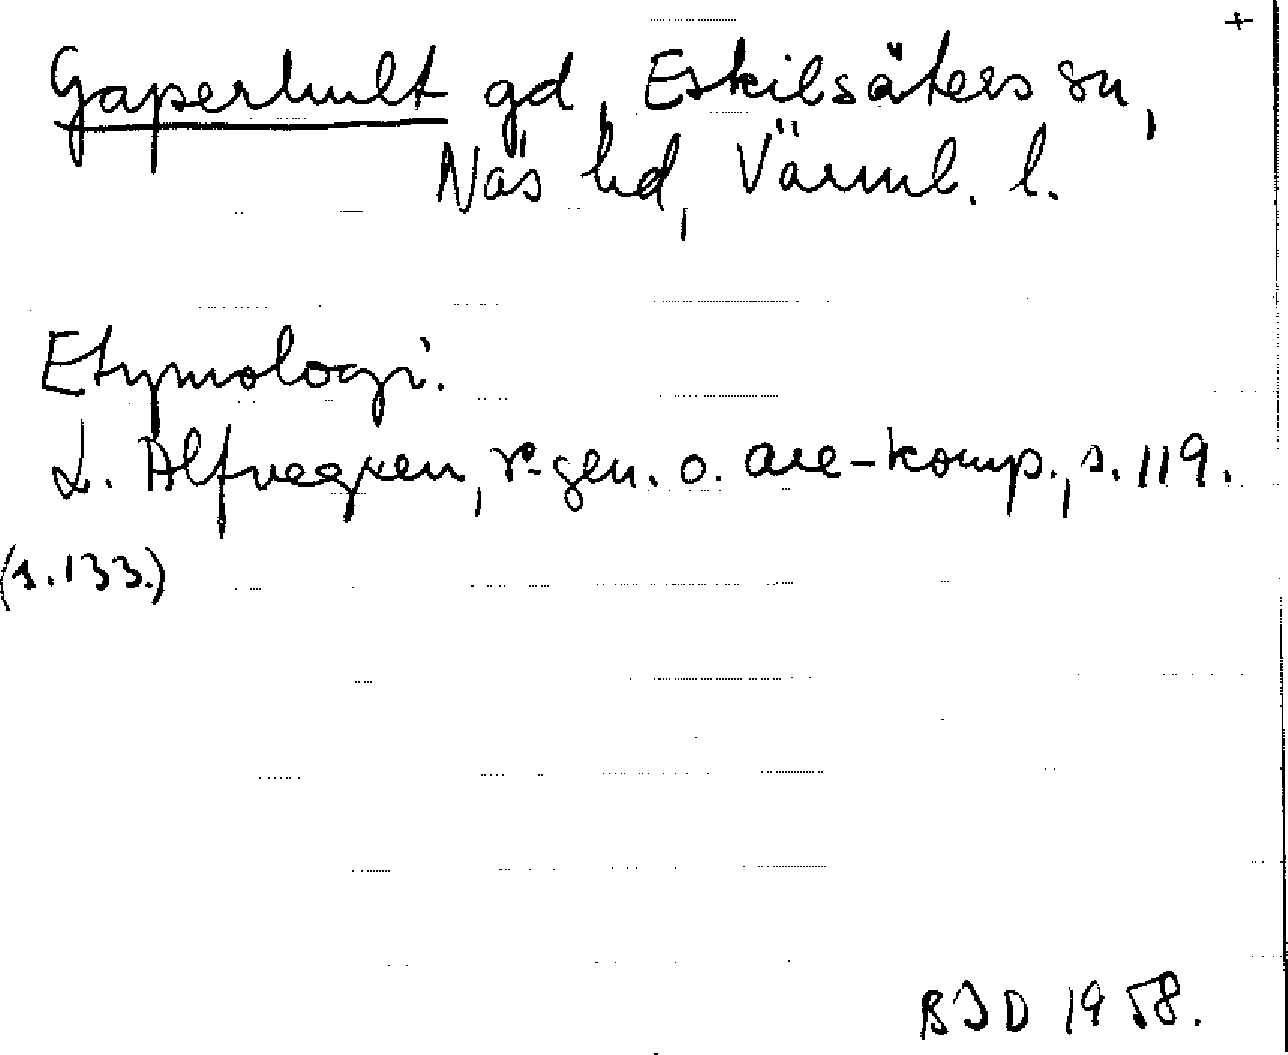 +
Gaperhult gd, Eskilsäters sn,
Näs hd, Värml. l.
Etymologi.
L. Alfvegren, r-gen. o. are-komp., s. 119.
(s. 133.)
BJD 1958.